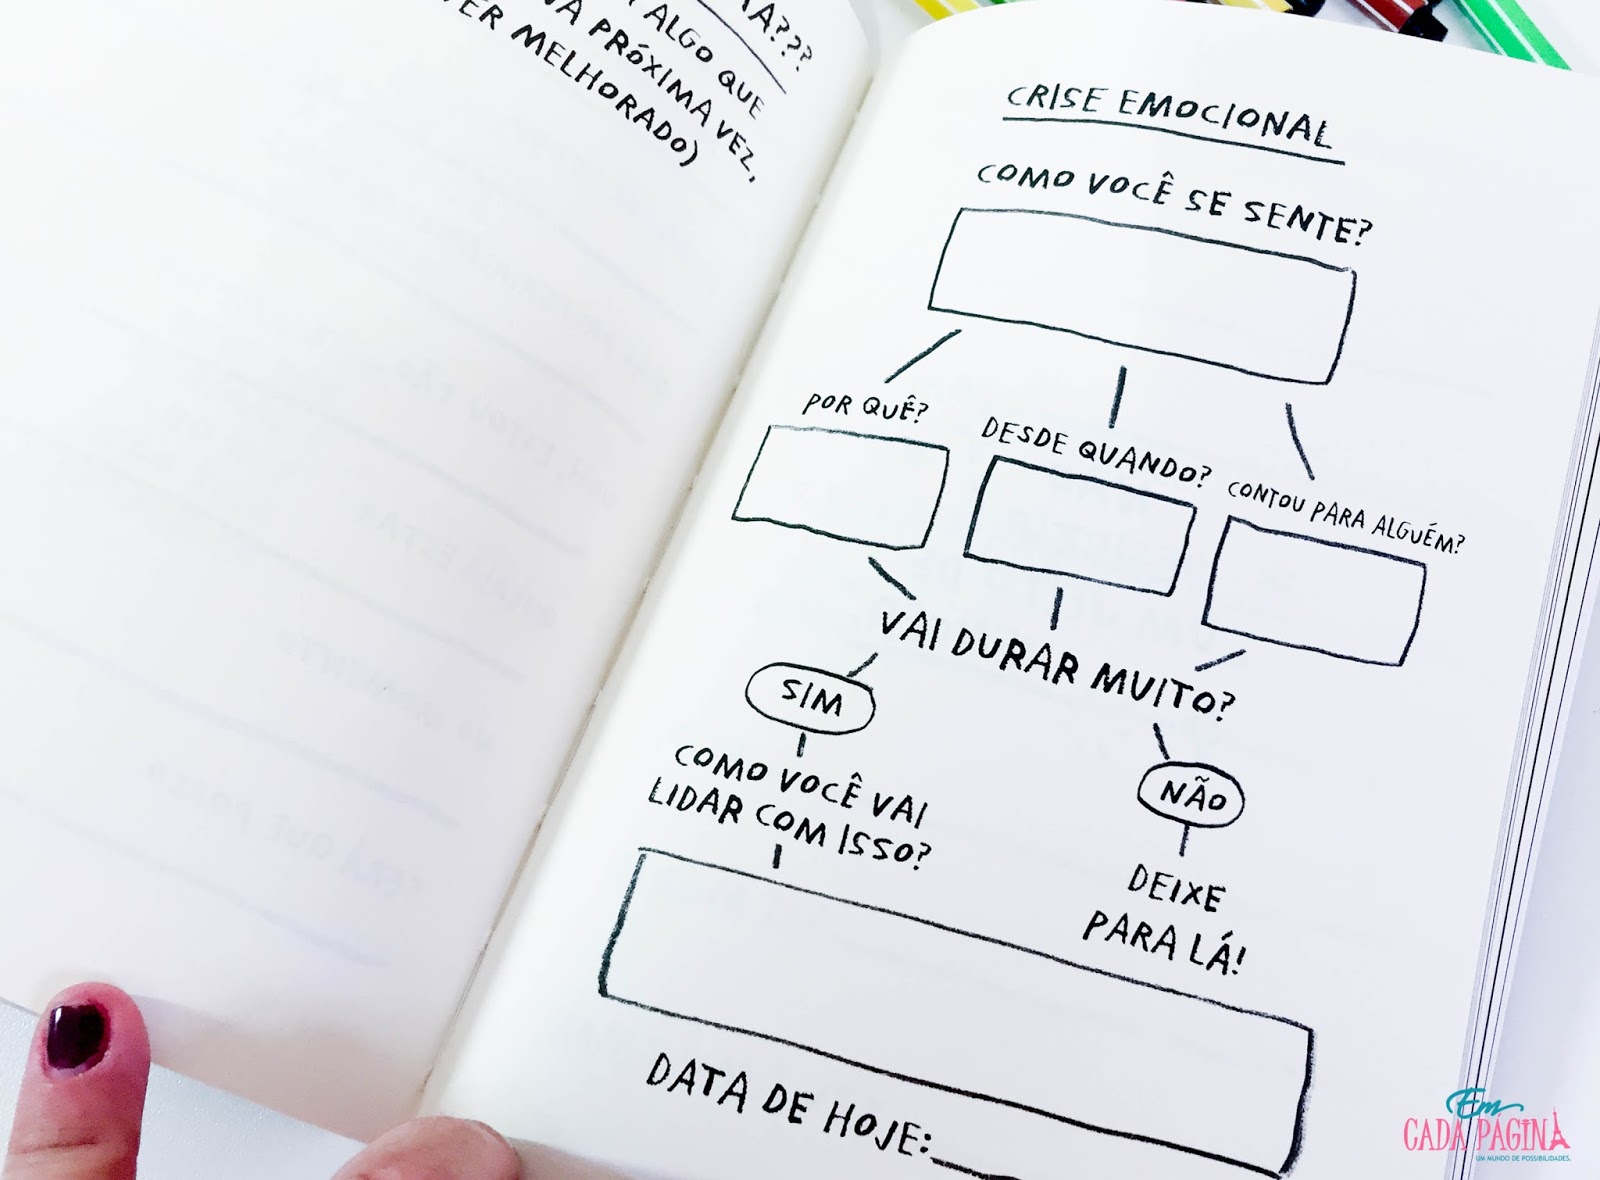 MA???
ALGO QUE
NA PRÓXIMA VEZ,
TER MELHORADO)
CRISE EMOCIONAL
COMO VOCÊ SE SENTE?
POR QUÊ?
DESDE QUANDO?
CONTOU PARA ALGUÉM?
VAI DURAR MUITO?
SIM
NÃO
COMO VOCÊ VAI
LIDAR COM ISSO?
DEIXE
PARA LÁ!
DATA DE HOJE:
Em
CADA PÁGINA
UM MUNDO DE POSSIBILIDADES.